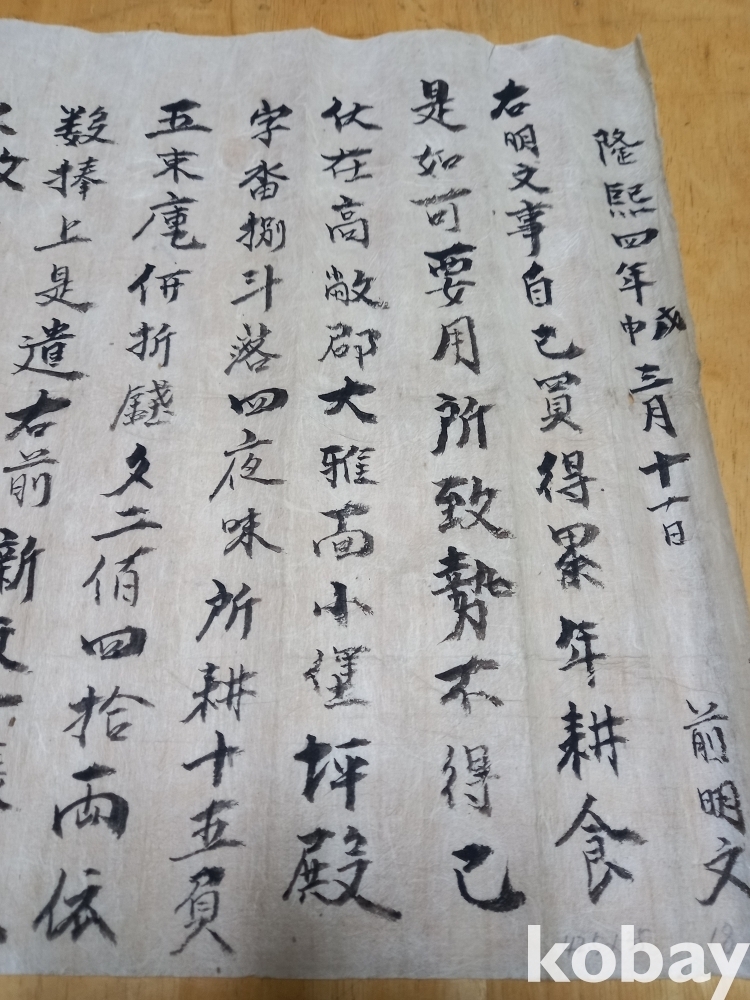 隆熙四年庚戌三月十一日 前明文
右明文事自己買得累年耕食
是如可要用所致勢不得已
伏在高敞郡大雅面小堡坪殿
字畓捌斗落四夜味所耕十五負
五束庫併折錢文二佰四拾兩依
数捧上是遣右前
kobay